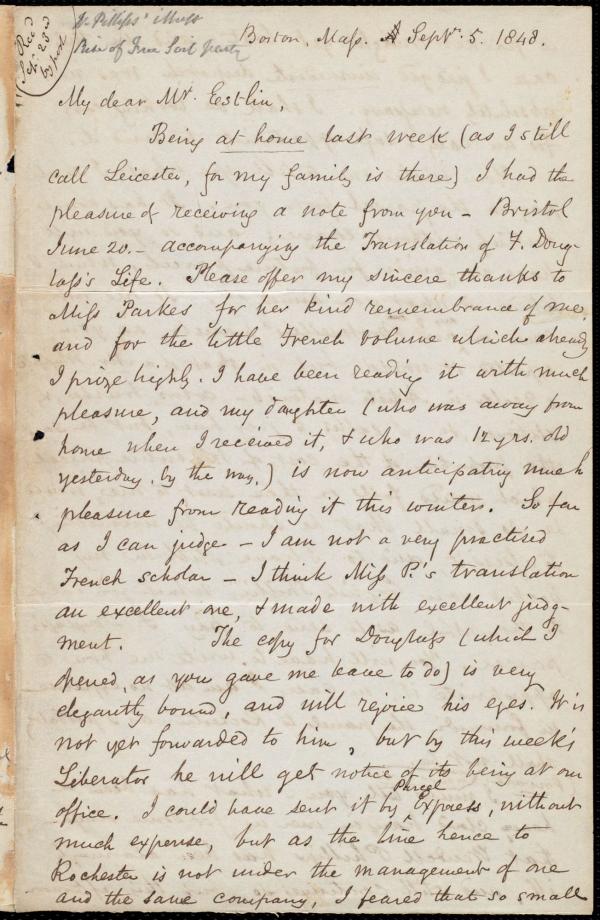 Recd
Sept. 23rd
by post
Dr Phillips' illness
Rise of Free Soil party
Boston, Mass. Septr. 5. 1848.
My dear Mr. Estlin,
Being at home last week (as I still
call Leicester, for my family is there) I had the
pleasure of receiving a note from you - Bristol
June 20. - accompanying the Translation of F. Doug-
lass's Life. Please offer my sincere thanks to
Miss Parkes for her kind remembrance of me,
and for the little French volume which already
I prize highly. I have been reading it with much
pleasure, and my daughter (who was away from
home when I received it, & who was 12 yrs. old
yesterday, by the way,) is now anticipating much
pleasure from reading it this winter. So far
as I can judge - I am not a very practised
French scholar - I think Miss P.'s translation
an excellent one, & made with excellent judg-
ment. The copy for Douglass (which I
opened, as you gave me leave to do) is very
elegantly bound, and will rejoice his eyes. It is
not yet forwarded to him, but by this week's
Liberator he will get notice of its being at our
office. I could have sent it by Parcel Express, without
much expense, but as the line hence to
Rochester is not under the management of one
and the same company, I feared that so small